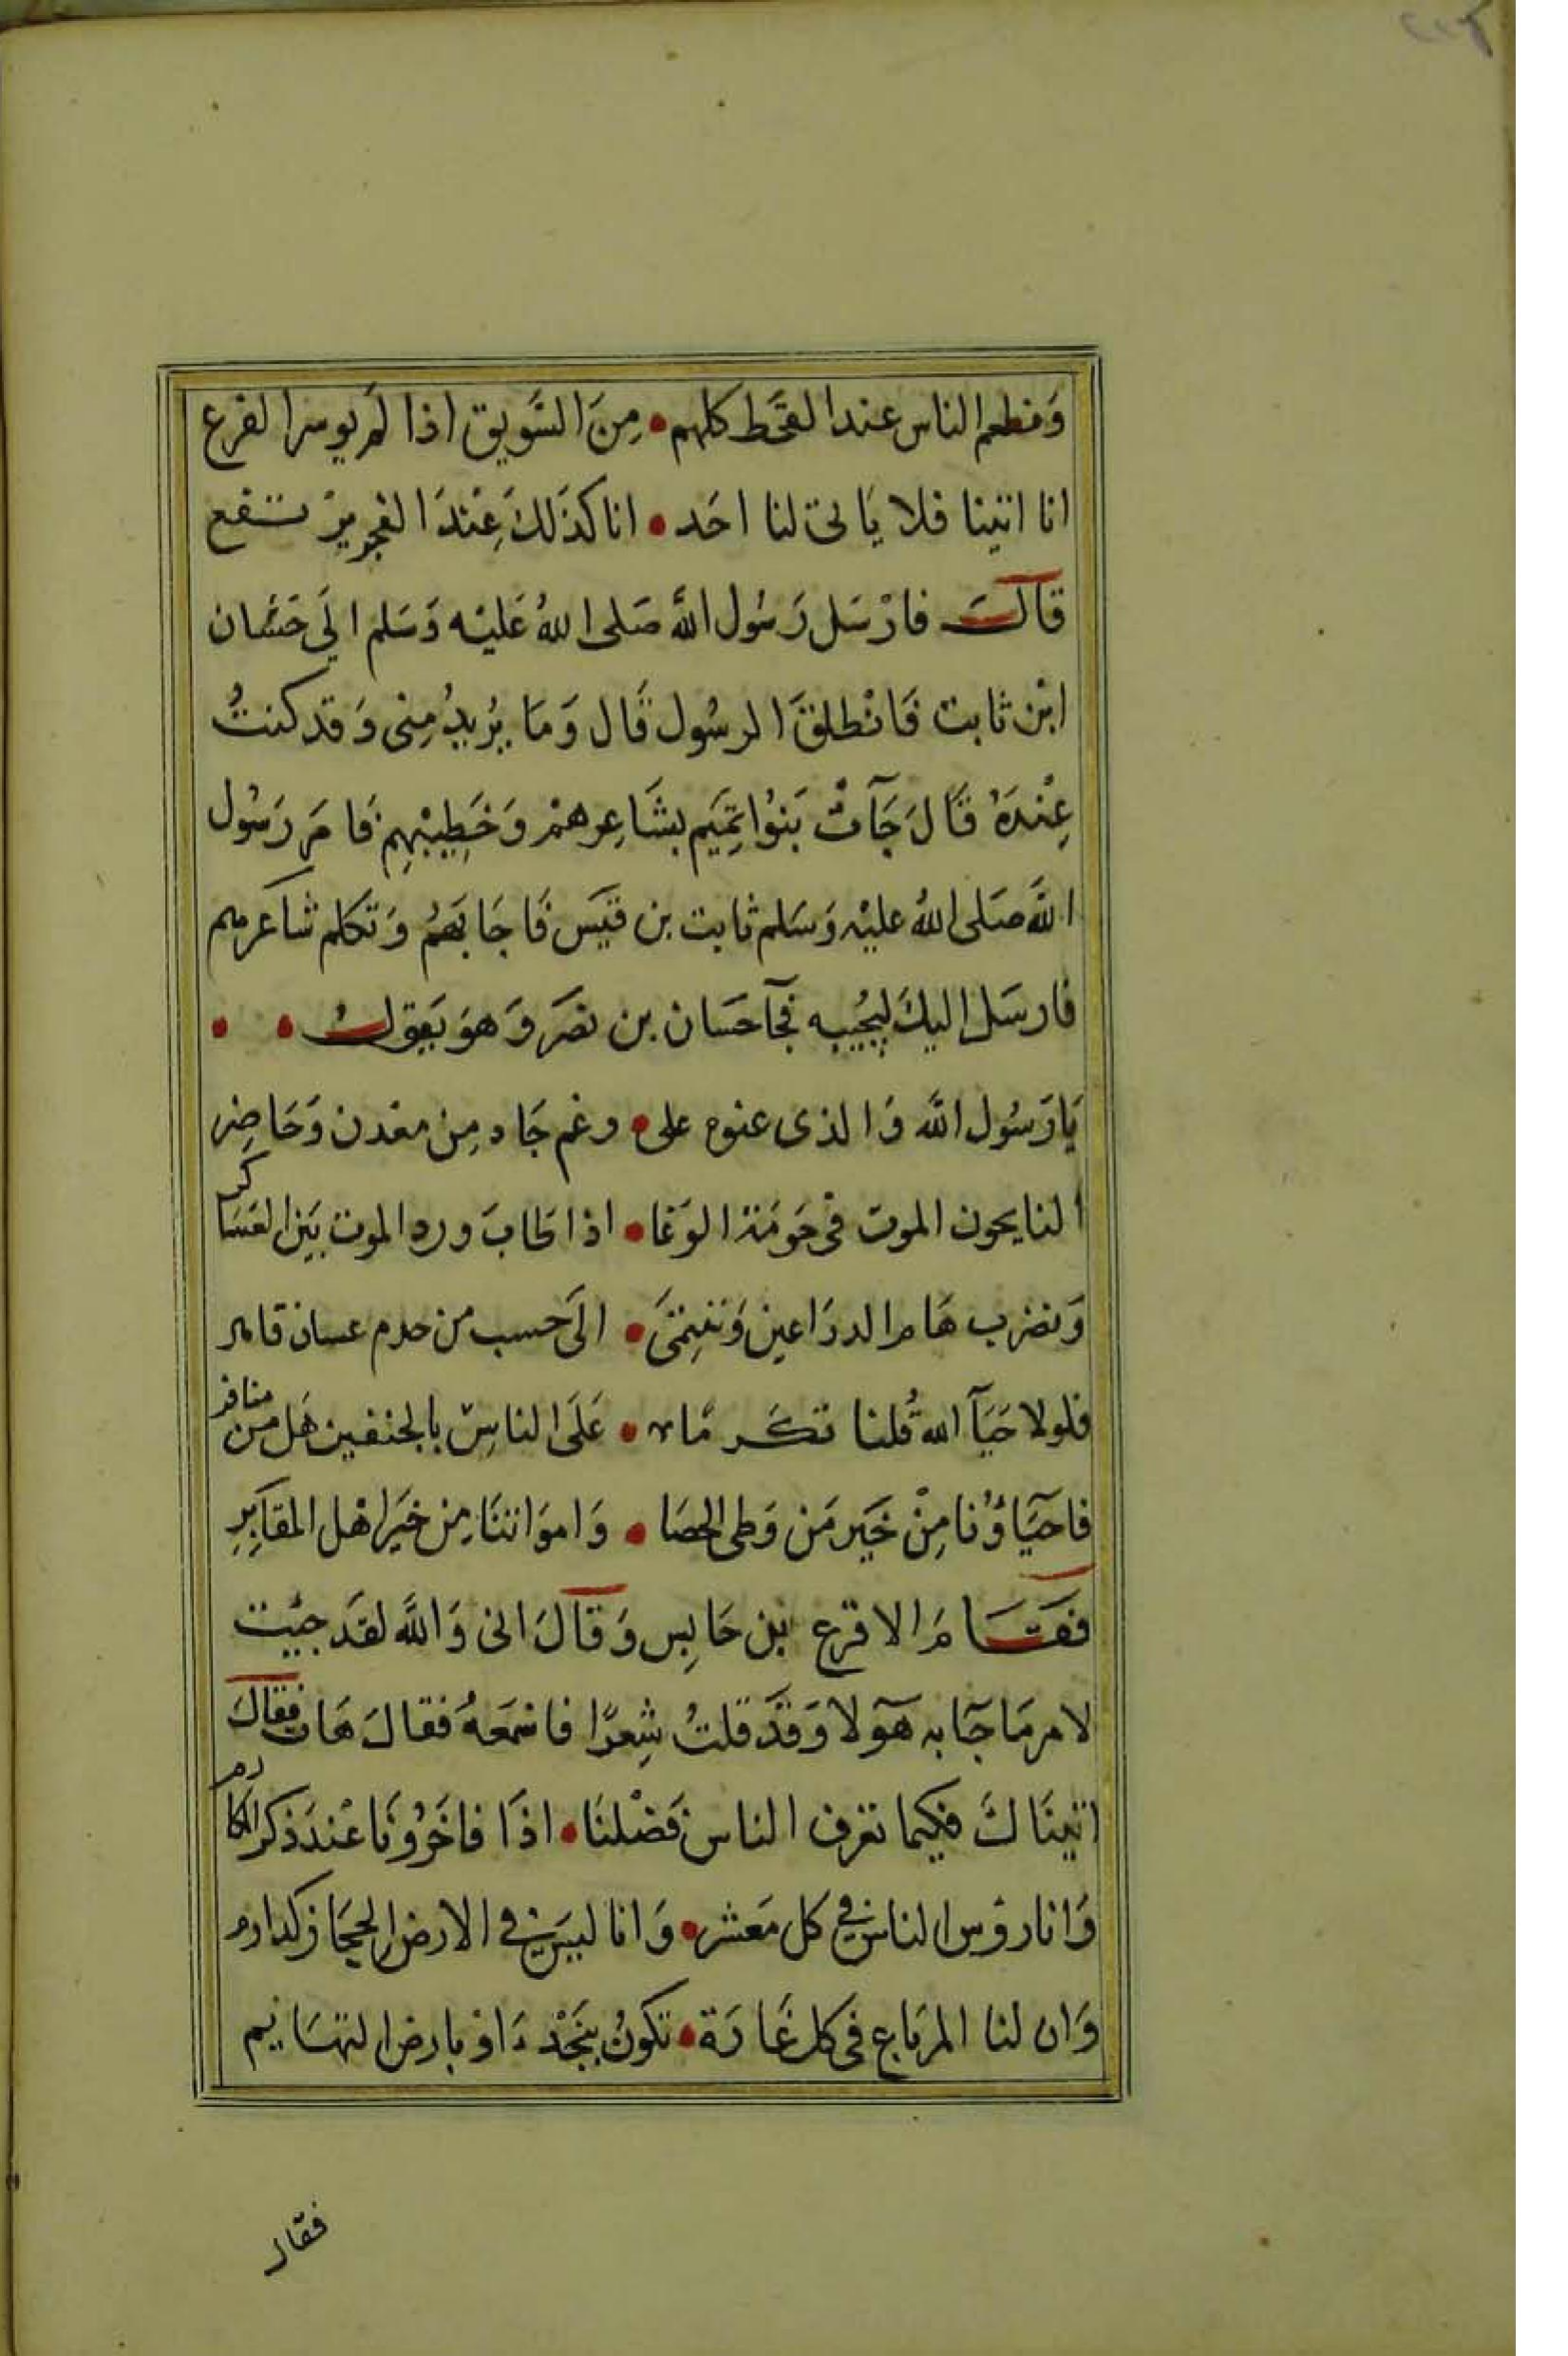 وَمنطعم الناس عند القحَط كلهم • مِنَ السَّويق اذا لم يوسر الفرع
انا اتينا فلا يَاتى لنا احَد • انا كذَلكَ عِنْدَ الفجر يرْ تـقع
قالت فارْسَل رَسُول الله صَلى اللهُ عَليْه وَسَلم الَي حَسَّان
ابْن ثابت فَانْطلقَ الرسُول قَال وَمَا يرُيدُ مِنى وَقدكنتُ
عِنْدَهُ قَالَ جَآتْ بَنوُا تِميَم بشَاعِرهمْ وَخَطِيبْهِم فَامَر رَسُول
اللَّه صَلى اللهُ عليْه وَسَلم ثابت بن قيَس فَاجَابَهُم وَتكلم شاعرهم
فارسَل اليكَ ليجُيبه فجآ حَسَان بن نصَر وَهوَ يَقولُ • •
يَا رَسُول اللَّه وَالذى عنوه على • رغم جَاد مِن معَدن وَحَاضِر
النايحون الموت فى حَومَة الوَغا • اذا طابَ ورد الموت بَين العَسَاكر
وَنضرب هَام الدرَاعين وَننِمىَ • الىَ حسب من حدم عسان قاهر
فلولا حَيَآ الله قُلنا تكَرمًا • عَلَى الناسِ بالجنفين هَل من منافر
فاحَيَاؤُنا مِنْ خَيَر مَن وَطى الحصَا • وَاموَاتنَا مِن خيَر اهْل المقابِرِ
فقَامَ الاقرع بْن حَابِس وَقالَ انى وَاللَّه لقدَ جيْت
لامر مَا جَآ به هَآولا وَقدَ قلتُ شِعرًا فاسْمَعهُ فقالَ هَات فقالَ
اتينَاكَ فيكيما تعَرف الناس فَضْلنَا • اذَا فاخَرُونَا عْندَ ذكر المكارم
وَانا روْس الناس فىِ كل مَعشر • وَانا ليَس فى الارض الحجَاز كدارم
وَان لنا المربَاع فى كل غَارَة • تكونُ بنجَدْ اوْ بارض التهَايم
فقال